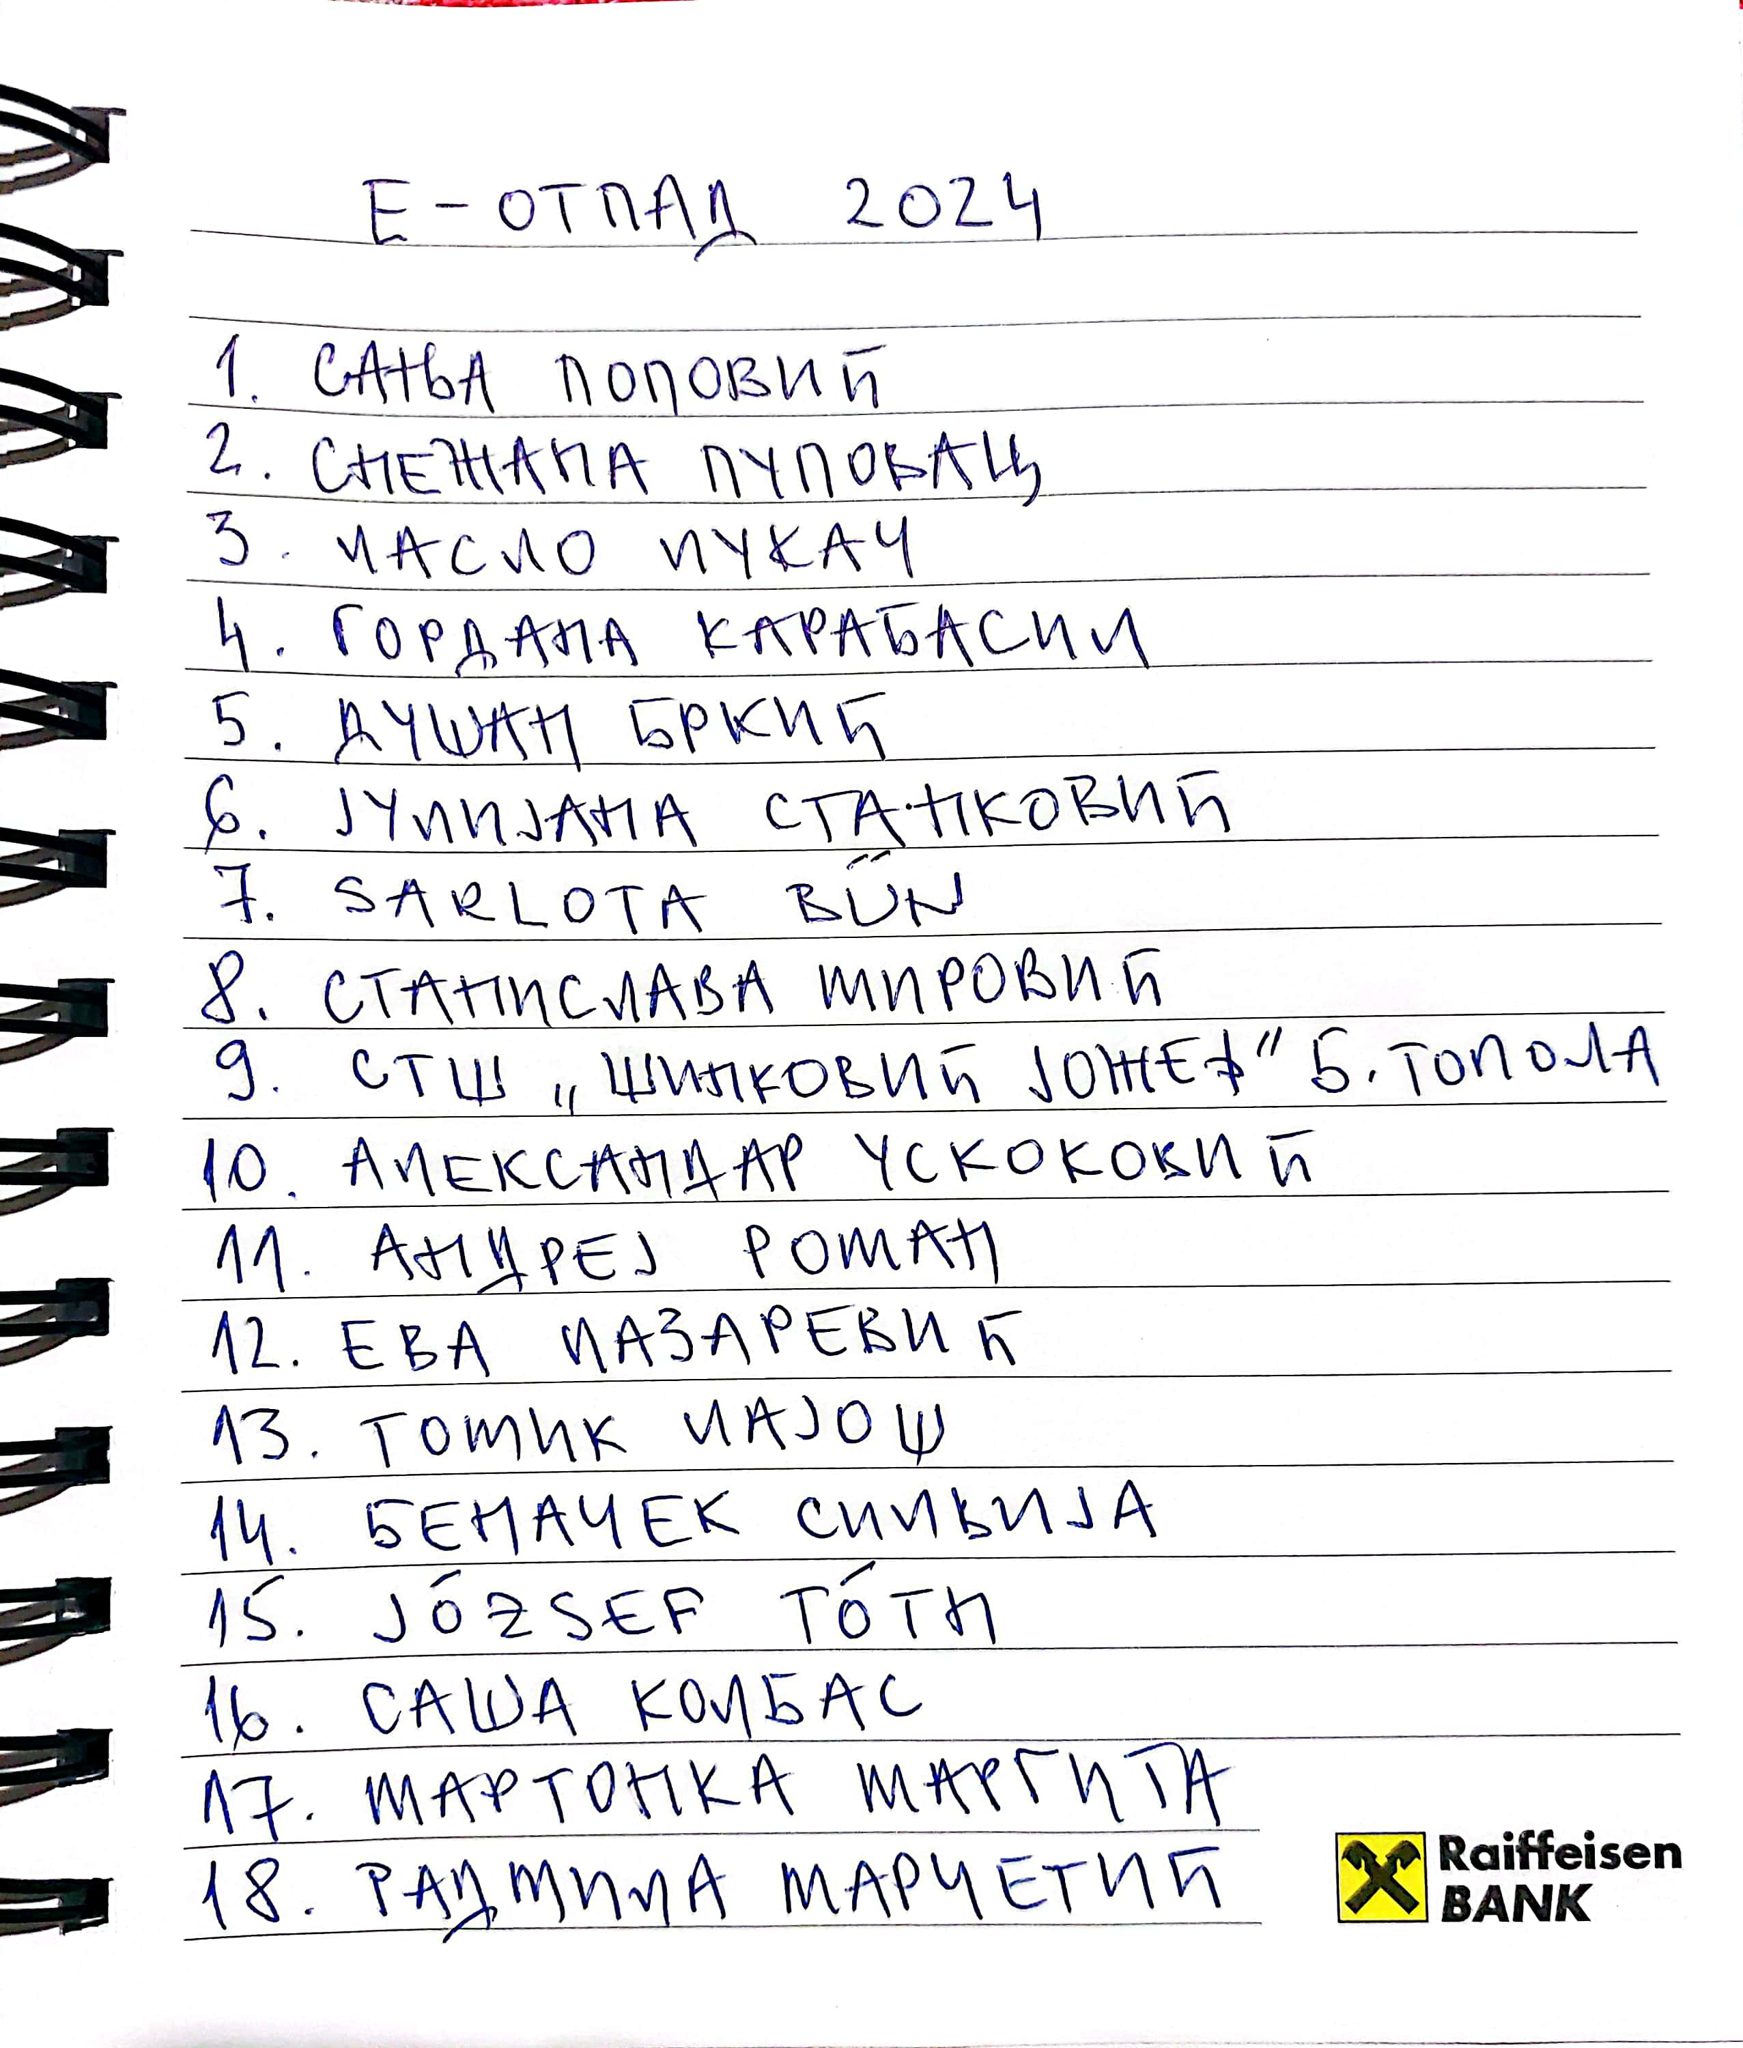 Е-ОТПАД 2024
1. САЊА ПОПОВИЋ
2. СНЕЖАНА ПУПОВАЦ
3. ЛАСЛО ЛУКАЧ
4. ГОРДАНА КАРАБАСИЛ
5. ДУШАН БРКИЋ
6. ЈУЛИЈАНА СТАНКОВИЋ
7. SARLOTA BŰN
8. СТАНИСЛАВА МИРОВИЋ
9. СТШ „ШИНКОВИЋ ЈОЖЕФ" Б. ТОПОЛА
10. АЛЕКСАНДАР УСКОКОВИЋ
11. АНДРЕЈ РОМАН
12. ЕВА ЛАЗАРЕВИЋ
13. ТОМИК ЛАЈОШ
14. БЕНАЧЕК СИЛВИЈА
15. JÓZSEF TÓTH
16. САША КОЛБАС
17. МАРТОНКА МАРГИТА
18. РАДМИЛА МАРЧЕТИЋ
Raiffeisen
BANK